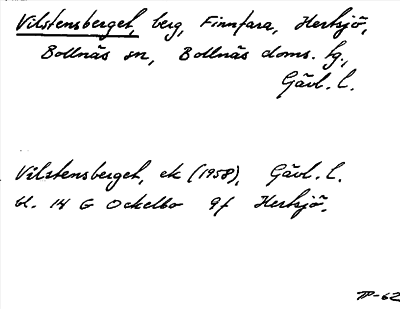 Vilstensberget, berg, Finnfara, Herksjö,
Bollnäs sn, Bollnäs doms. tg.,
Gävl. l.
Vilstensberget, ek (1958), Gävl. l.
bl. 14 G Ockelbo 9f Herksjö.
-62